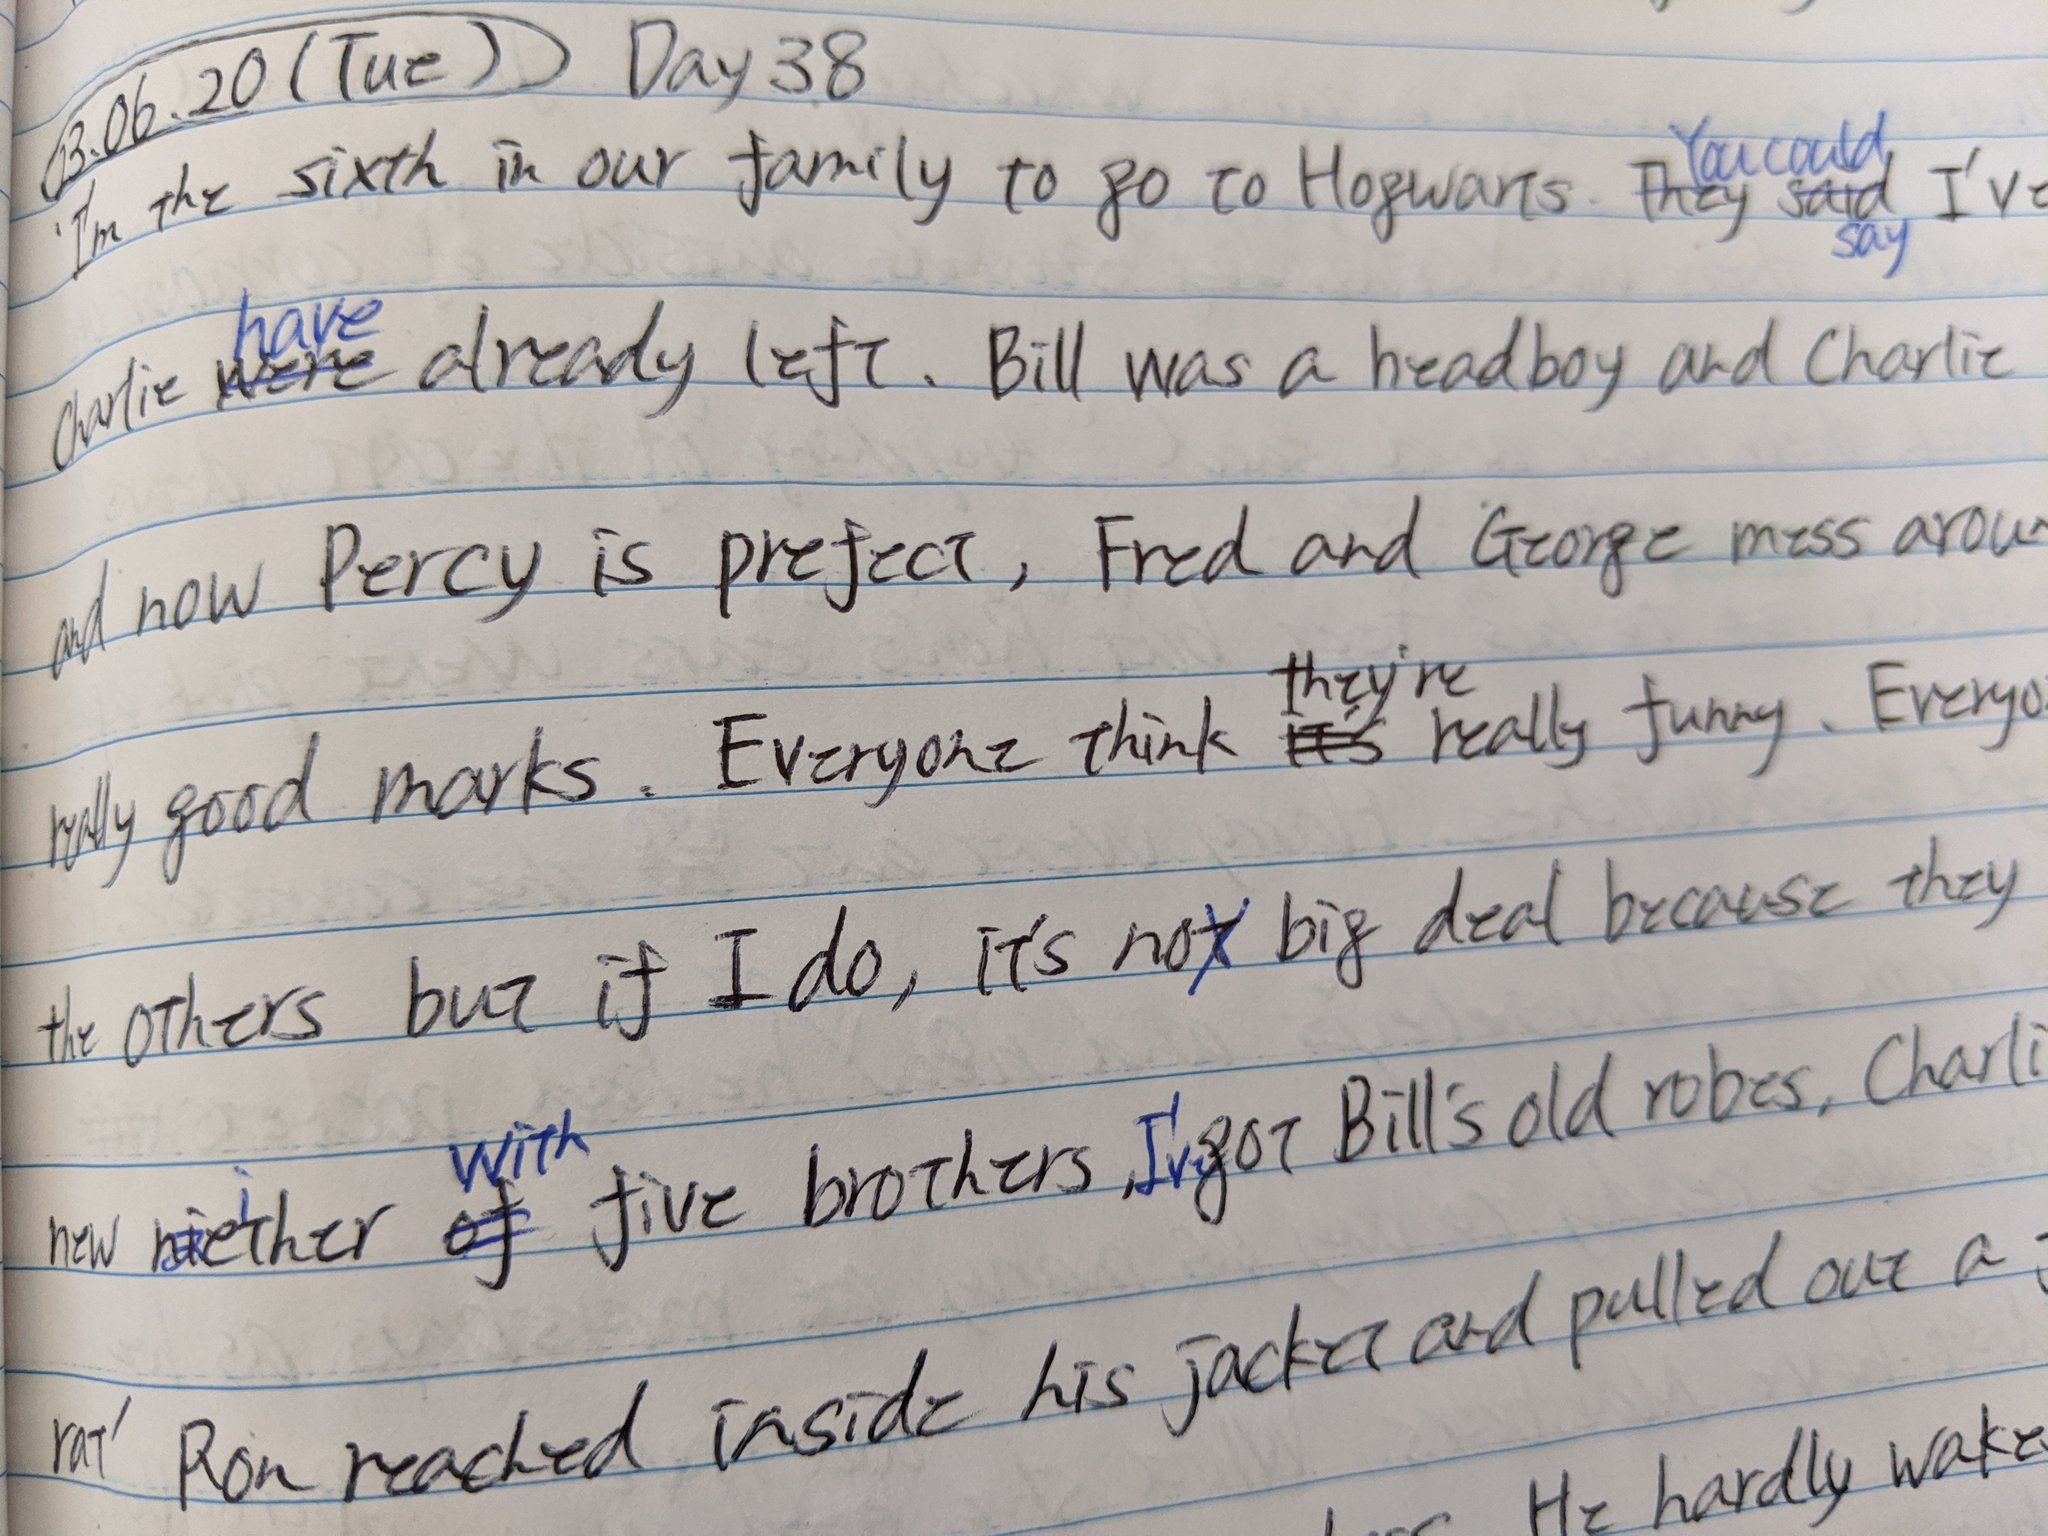 23.06.20 (Tue) Day 38
You could
'I'm the sixth in our family to go to Hogwarts. They said I've
say
have
Charlie were already left. Bill was a headboy and Charlie
and now Percy is prefect, Fred and George mess aroun
they're
really good marks. Everyone think it's really funny. Everyo
the others but if I do, it's not big deal because they
with
new niether of five brothers, I've got Bill's old robes, Charli
rat' Ron reached inside his jacket and pulled out a
He hardly wake